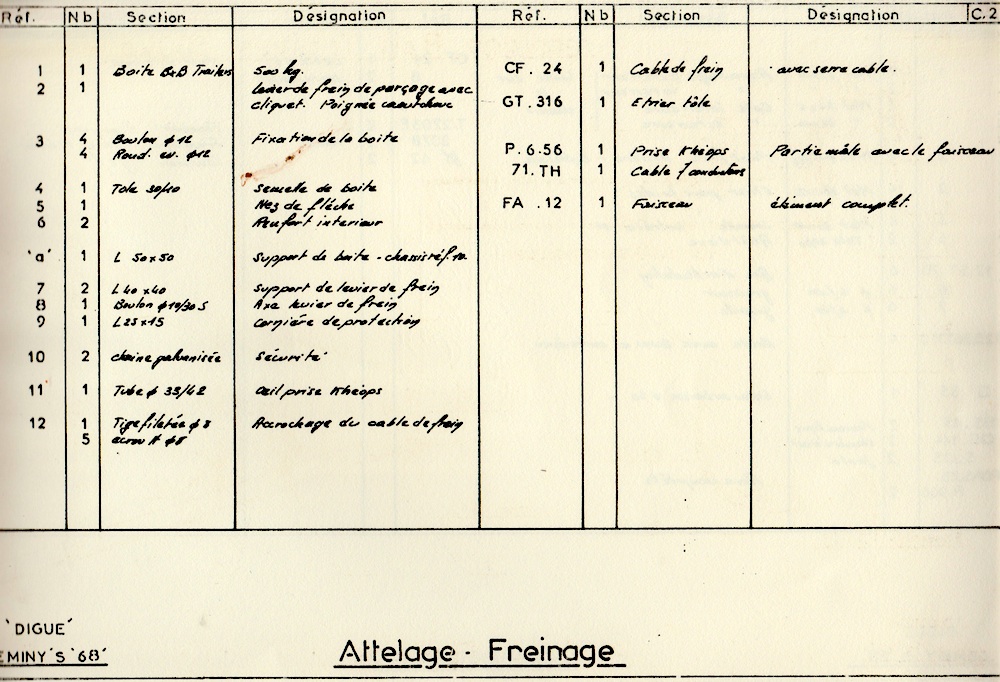 Réf. Nb Section Désignation Réf. Nb Section Désignation C.2
1 1 Boite B&B Trailers 500 kg.
2 1 Levier de frein de parcage avec
cliquet. Poignée caoutchouc
3 4 Boulon φ12 Fixation de la boite
4 Rond. ev. φ12
4 1 Tole 30/10 Semelle de boite
5 1 Nez de flèche
6 2 Renfort interieur
'a' 1 L 50x50 Support de boite - chassis réf. 10.
7 2 L 40 x 40 Support de levier de frein
8 1 Boulon φ10/30 S Axe levier de frein
9 1 L 25 x 15 Cornière de protection
10 2 chaine galvanisée Sécurité
11 1 Tube φ 33/42 Œil prise Khéops
12 1 Tige filetée φ 8 Accrochage du cable de frein
5 ecrou H φ8
CF. 24 1 Cable de frein avec serre cable.
GT. 316 1 Etrier tôle
P. 6.56 1 Prise Khéops Partie mâle avec le faisceau
71. TH 1 Cable 7 conducteurs
FA . 12 1 Faisceau élément complet.
'DIGUE'
EMINY'S '68'
Attelage - Freinage